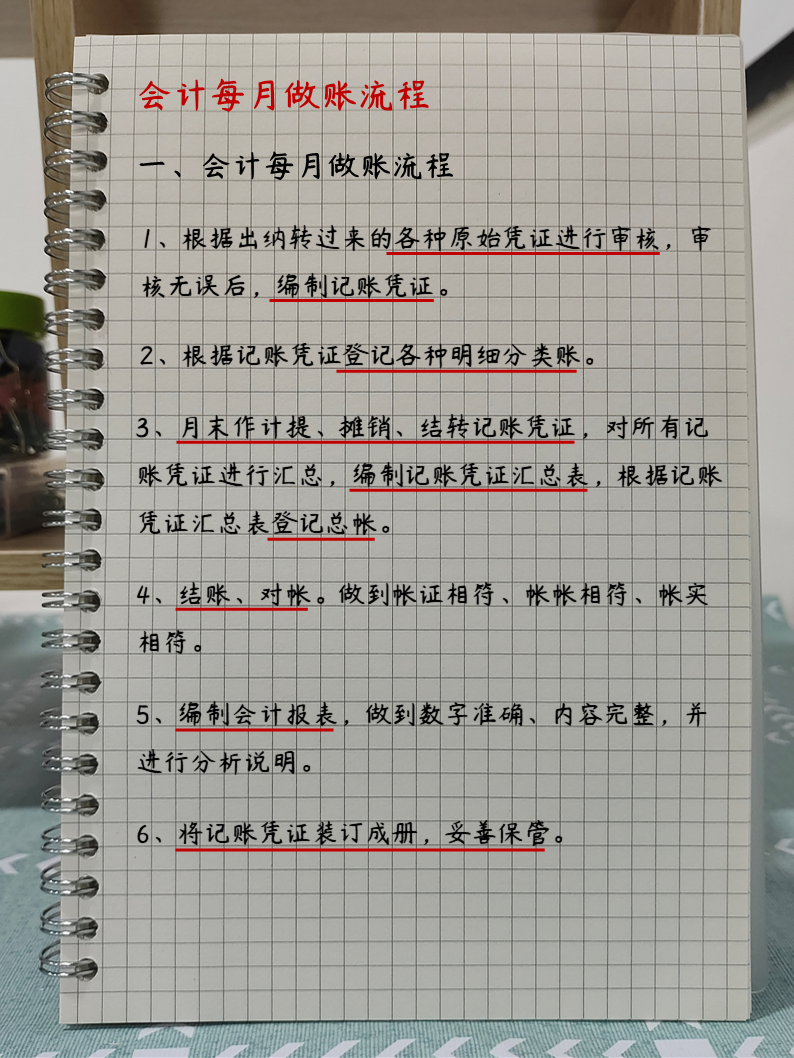 会计每月做账流程
一、会计每月做账流程
1、根据出纳转过来的各种原始凭证进行审核，审
核无误后，编制记账凭证。
2、根据记账凭证登记各种明细分类账。
3、月末作计提、摊销、结转记账凭证，对所有记
账凭证进行汇总，编制记账凭证汇总表，根据记账
凭证汇总表登记总帐。
4、结账、对帐。做到帐证相符、帐帐相符、帐实
相符。
5、编制会计报表，做到数字准确、内容完整，并
进行分析说明。
6、将记账凭证装订成册，妥善保管。